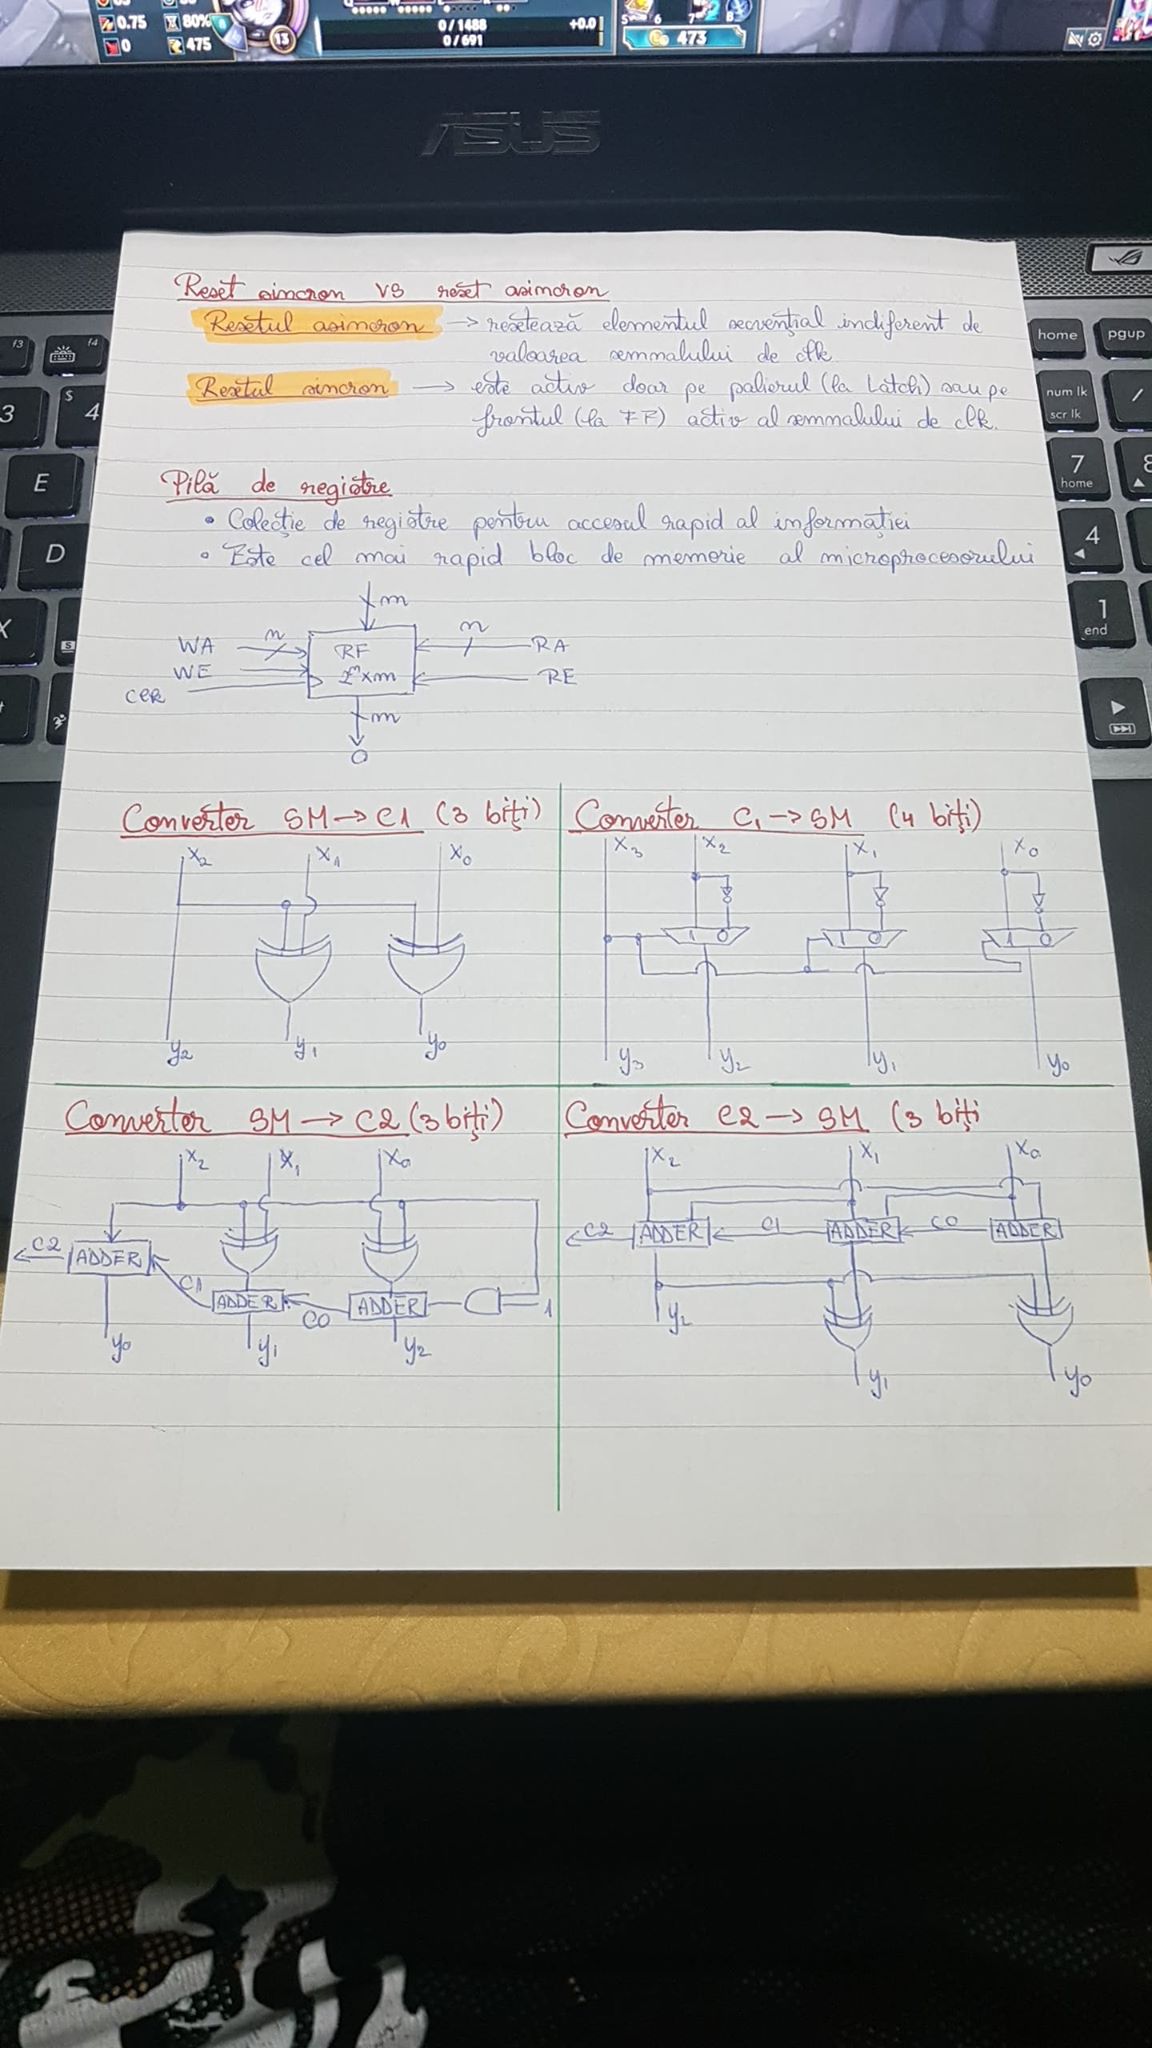 0.75
80%
0
475
13
0/1488
+0.0
0/691
6
7
473
ASUS
Reset sincron VS reset asincron
Resetul asincron → resetează elementul secvențial indiferent de
valoarea semnalului de clk
Resetul sincron → este activ doar pe palierul (la Latch) sau pe
frontul (la FF) activ al semnalului de clk.
Pilă de registre
• Colecție de registre pentru accesul rapid al informației
• Este cel mai rapid bloc de memorie al microprocesorului
m
WA n RF n RA
WE 2ⁿxm RE
m
O
Converter SM → C1 (3 biți)
X2 X1 X0
y2 y1 y0
Converter C1 → SM (4 biți)
X3 X2 X1 X0
1 0 1 0 1 0
y3 y2 y1 y0
Converter SM → C2 (3 biți)
X2 X1 X0
C2 ADDER C1 ADDER C0 ADDER 1
y0 y1 y2
Converter C2 → SM (3 biți
X2 X1 X0
C2 ADDER C1 ADDER C0 ADDER
y2
y1 y0
f3
f4
3
$
4
E
D
X
home
pgup
num lk
scr lk
/
7
home
8
4
1
end